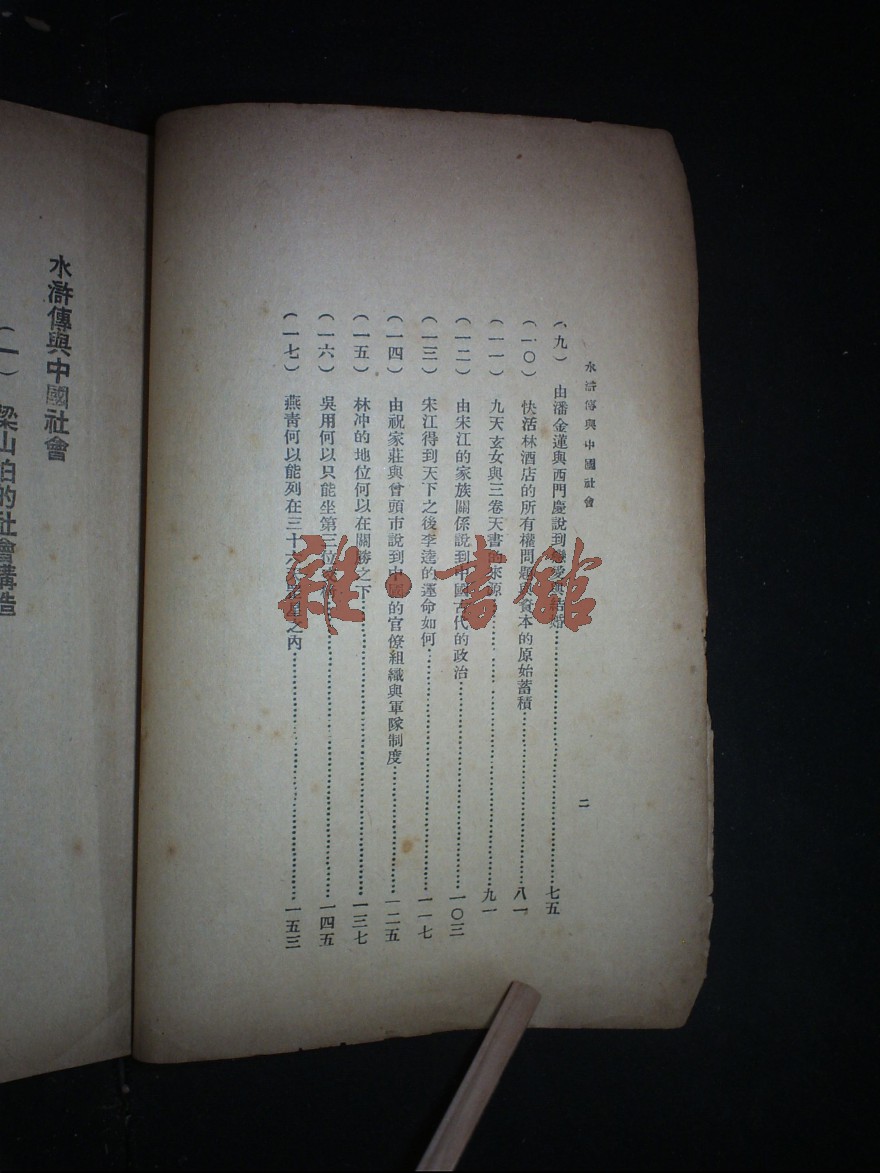 水滸傳與中國社會
二
(九) 由潘金蓮與西門慶說到戀愛與結婚…………七五
(一〇) 快活林酒店的所有權問題與資本的原始蓄積…………八一
(一一) 九天玄女與三卷天書的來源…………九一
(一二) 由宋江的家族關係說到中國古代的政治…………一〇三
(一三) 宋江得到天下之後李逵的運命如何…………一一七
(一四) 由祝家莊與曾頭市說到中國的官僚組織與軍隊制度…………一二五
(一五) 林冲的地位何以在關勝之下…………一三七
(一六) 吳用何以只能坐第三位…………一四五
(一七) 燕青何以能列在三十六天罡星之內…………一五三
水滸傳與中國社會
(一) 梁山泊的社會構造
雜·書館